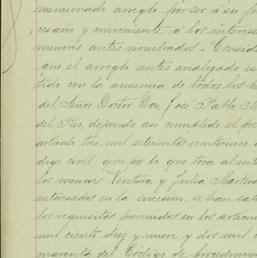 mencionado arreglo por ser á su ju
cesario y conveniente, á los interese
menores antes nombrados - Conside
que el arreglo antes analizado se
tido con la anuencia de todos los he
del Señor Doctor Don José Pablo M
del Rio, dejando así cumplido el
artículo tres mil setecientos
digo Civil, que por lo que toca al inte
los menores Ventura y Julia Martine
interesados en la sucesion, se han sat
los requisitos prevenidos en los artícu
mil ciento diez y nueve y dos mil
marenta del Código de Procedimien